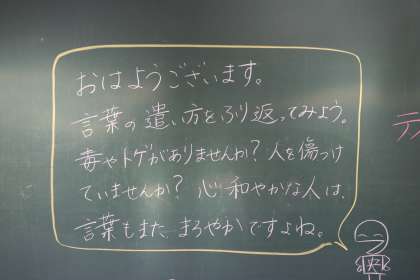 おはようございます。
言葉の遣い方をふり返ってみよう。
毒やトゲがありませんか?人を傷つけ
ていませんか?心和やかな人は、
言葉もまた、まろやかですよね。